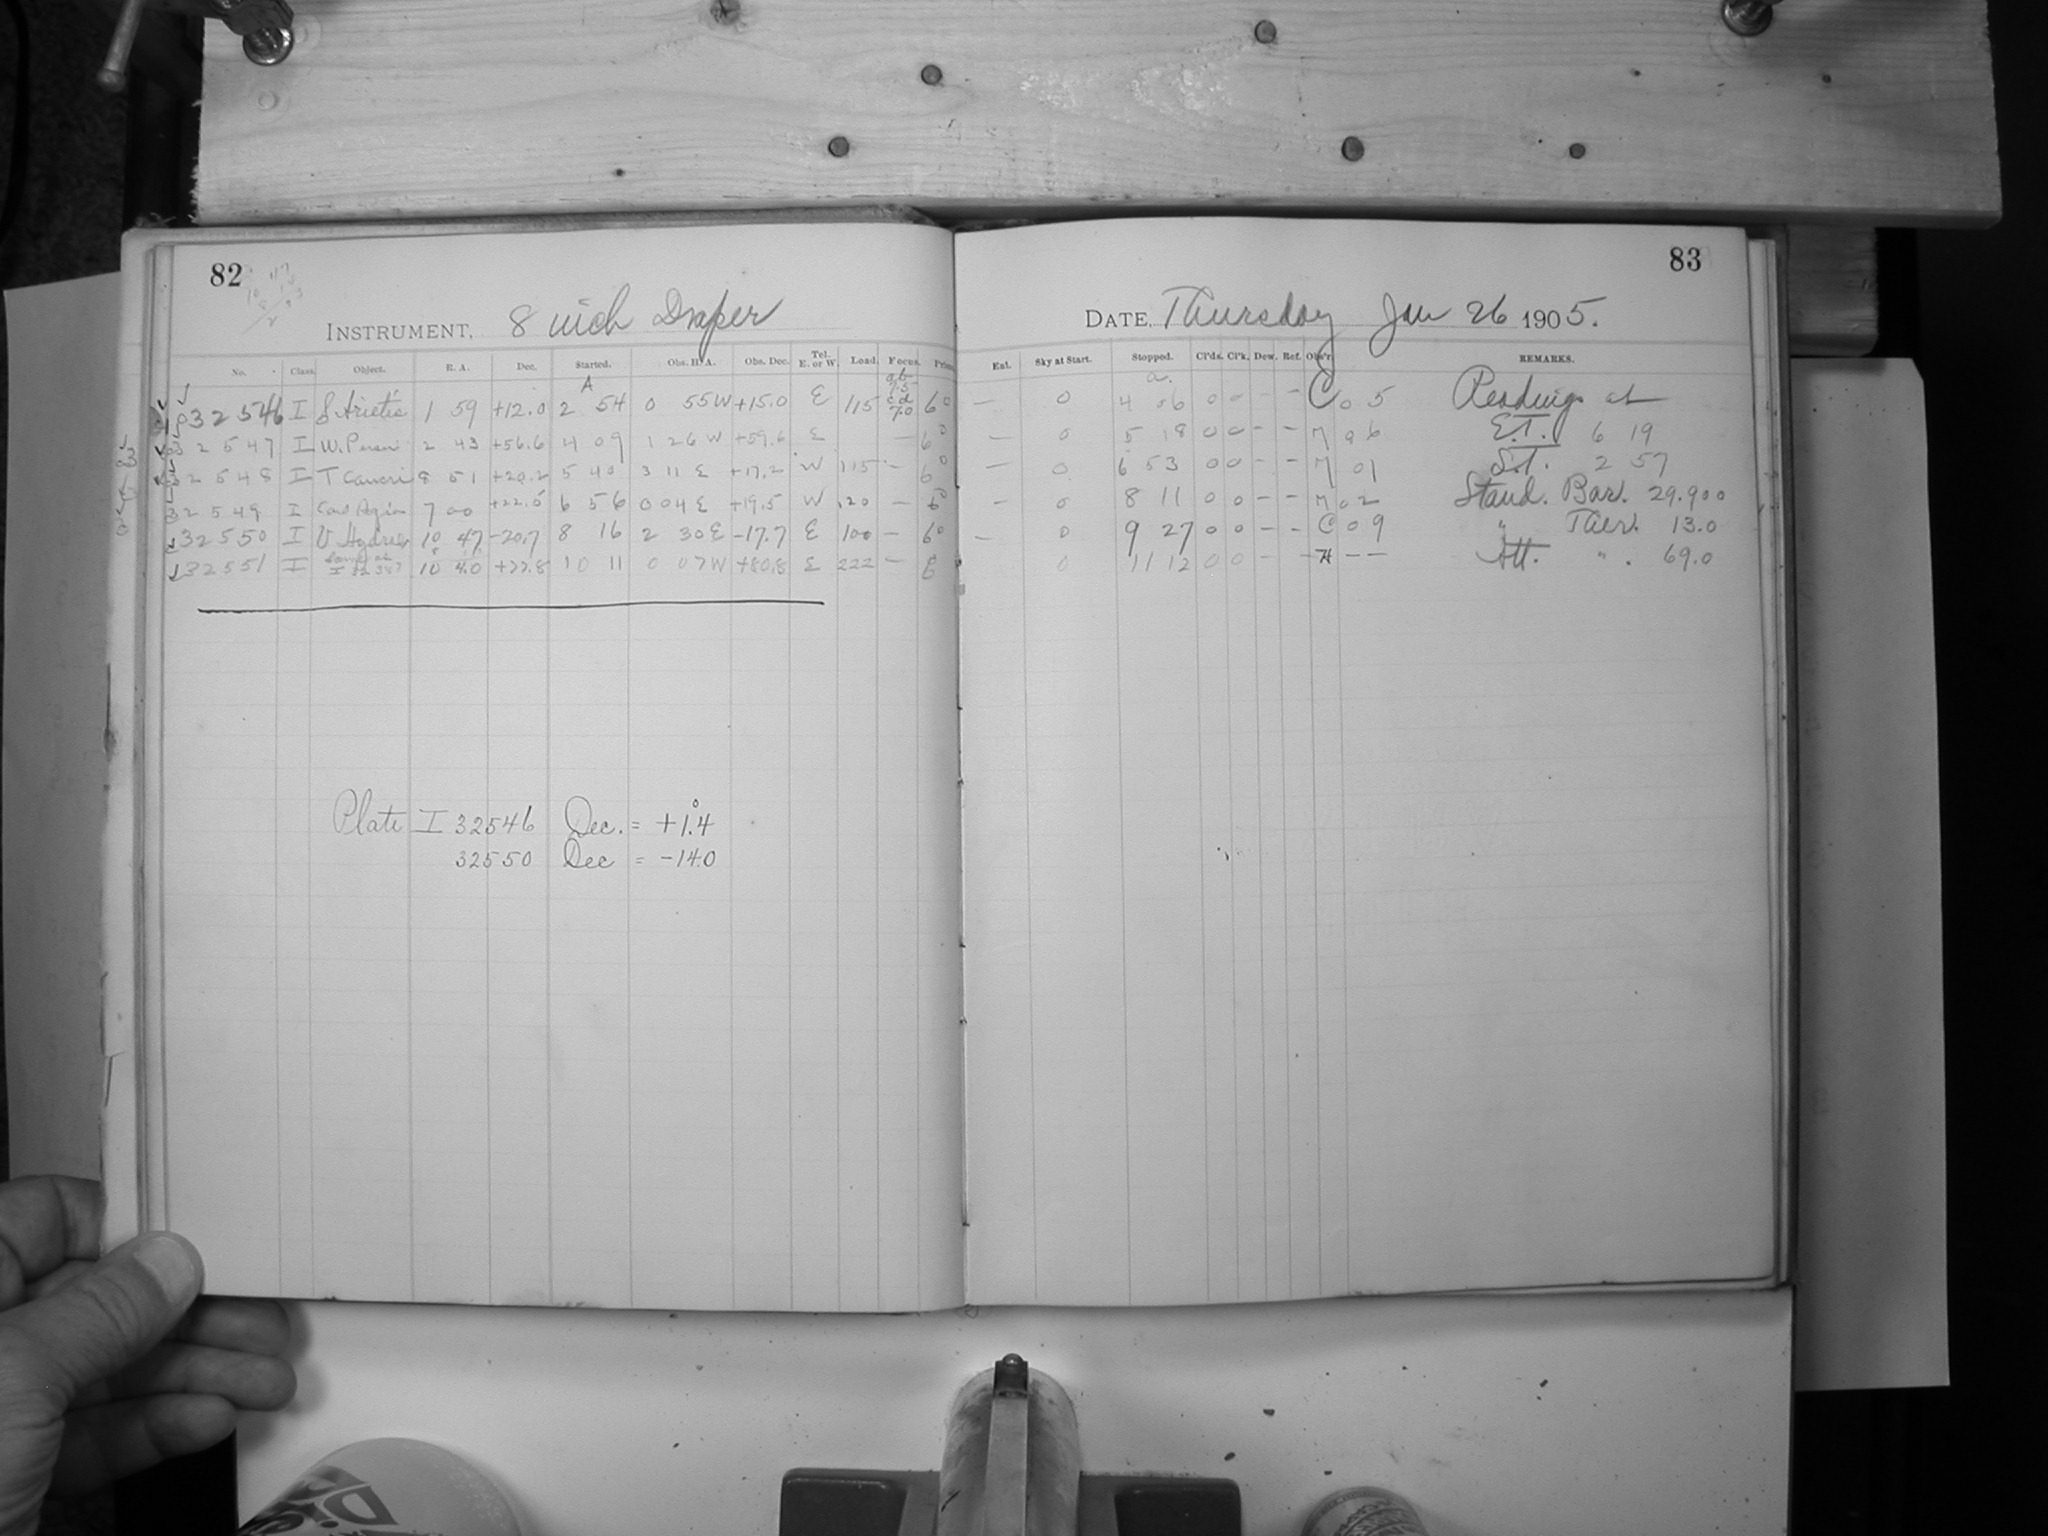 82
INSTRUMENT, 8 inch Draper
No. Class. Object. R. A. Dec. Started. Obs. H. A. Obs. Dec. Tel. E. or W. Load. Focus.
32546 I Arietis 1 59 +12.0 2 54 0 55 W +15.0 E 115 ab 7.5 cd 7.0 60
32547 I W. Persei 2 43 +56.6 4 09 1 26 W +59.6 E — 60
32548 I T Cancri 8 51 +20.2 5 40 3 11 E +17.2 W 115 — 60
32549 I 7 00 +22.5 6 56 0 04 E +19.5 W 120 — 60
32550 I U Hydrae 10 47 -20.7 8 16 2 30 E -17.7 E 100 — 60
32551 I 10 40 +77.8 10 11 0 07 W +80.8 E 222 —
Plate I 32546 Dec. = +1°.4
32550 Dec = -14.0
83
DATE, Thursday Jan 26 1905.
Ent. Sky at Start. Stopped. Cl'ds. Cl'k. Dew. Ref. Obs'r. REMARKS.
— 0 4 06 0 0 - - C 0 5 Readings at
— 0 5 18 0 0 - - 06 E.T. 6 19
— 0 6 53 0 0 - - 01 S.T. 2 57
— 0 8 11 0 0 - - 02 Stand. Bar. 29.900
— 0 9 27 0 0 - - C 0 9 " Ther. 13.0
0 11 12 0 0 - - - - Att. " . 69.0